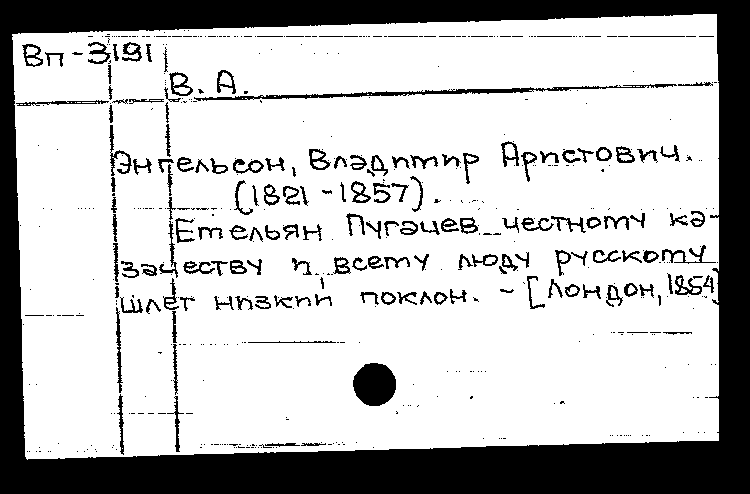 Вп-3191
В. А.
Энгельсон, Владимир Аристович.
(1821-1857).
Емельян Пугачев честному ка-
зачеству и всему люду русскому
шлет низкий поклон. - [Лондон, 1854]